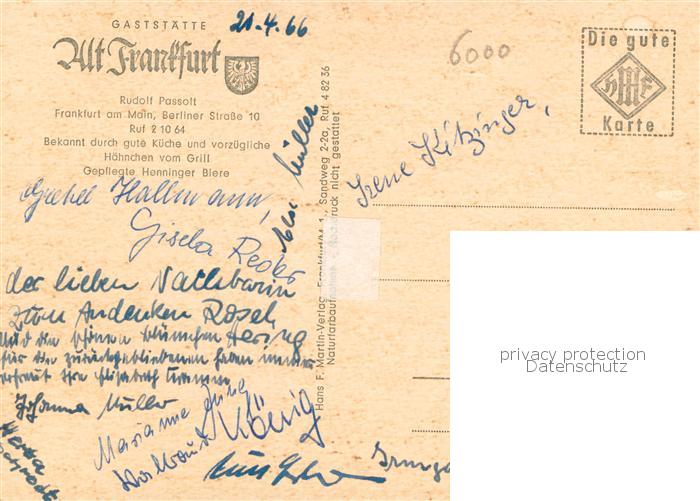 21.4.66
GASTSTÄTTE
Alt Frankfurt
Rudolf Passolt
Frankfurt am Main, Berliner Straße 10
Ruf 2 10 64
Bekannt durch gute Küche und vorzügliche
Hähnchen vom Grill
Gepflegte Henninger Biere
Gretel Hallmann,
Gisela
Müller
der lieben Nachbarin
Zum Andenken Rosel
Und die schönen Blümchen Hering
für die zurückgebliebenen haben
erfreut Ihre Elisabeth
Johanna Müller
Marianne
Waltraud König
Hans F. Martin-Verlag, Frankfurt/M. 1, Sandweg 2-2a, Ruf 4 82 36
Nachdruck nicht gestattet
6000
Die gute
HMF
Karte
Irene Kitzinger,
privacy protection
Datenschutz